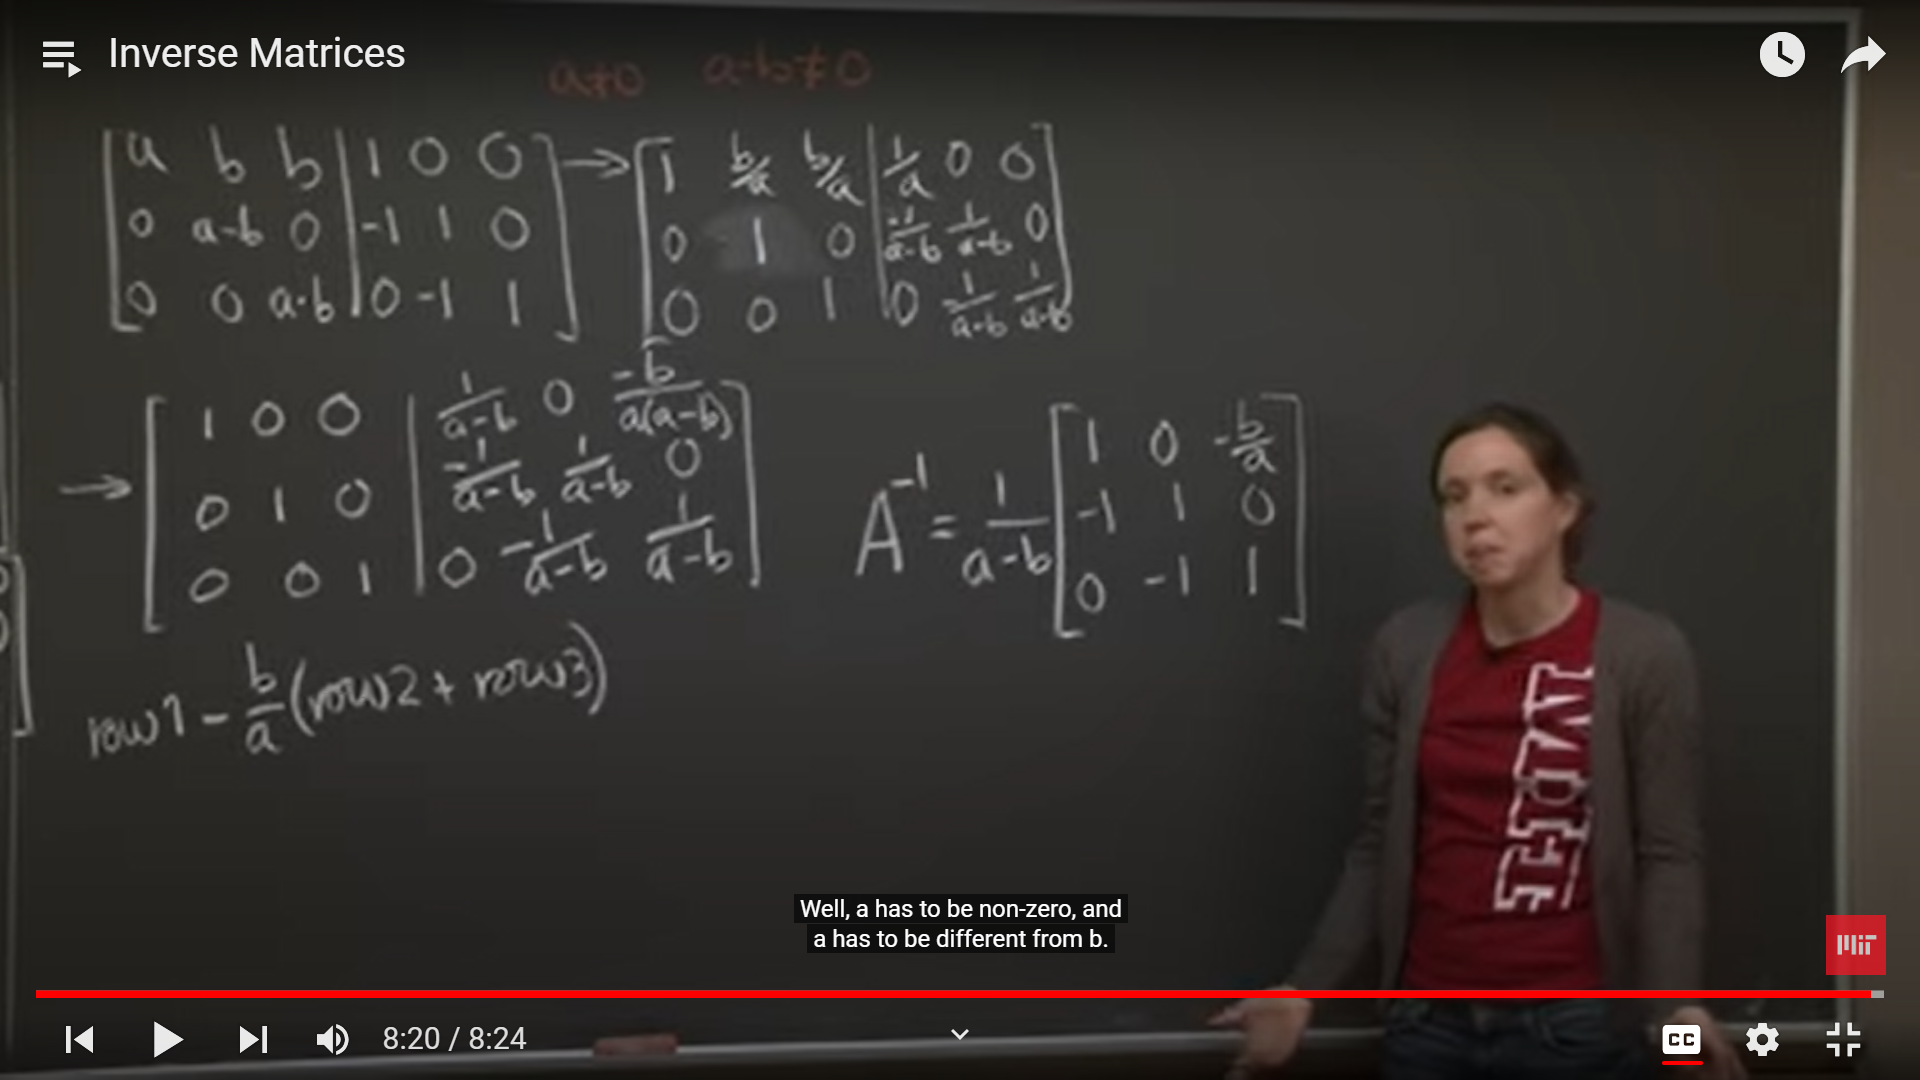 Inverse Matrices
a≠0 a-b≠0
[a b b | 1 0 0] → [1 b/a b/a | 1/a 0 0]
[0 a-b 0 | -1 1 0] [0 1 0 | -1/a-b 1/a-b 0]
[0 0 a-b | 0 -1 1] [0 0 1 | 0 -1/a-b 1/a-b]
→ [1 0 0 | 1/a-b 0 -b/a(a-b)]
[0 1 0 | -1/a-b 1/a-b 0]
[0 0 1 | 0 -1/a-b 1/a-b]
A⁻¹ = 1/a-b [1 0 -b/a]
[-1 1 0]
[0 -1 1]
row1 - b/a (row2 + row3)
Well, a has to be non-zero, and
a has to be different from b.
MIT
8:20 / 8:24
CC